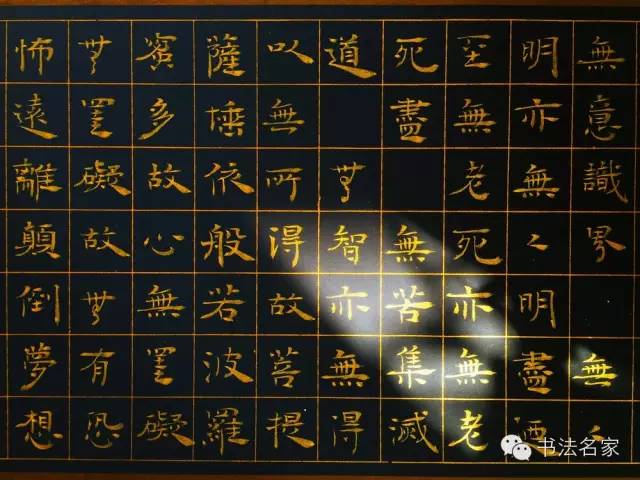 無意識界無々
明亦無々明盡迺
至無老死亦無老
死盡無苦集滅
道無智亦無得
以無所得故菩提
薩埵依般若波羅
蜜多故心無罣礙
無罣礙故無有恐
怖遠離顛倒夢想
书法名家